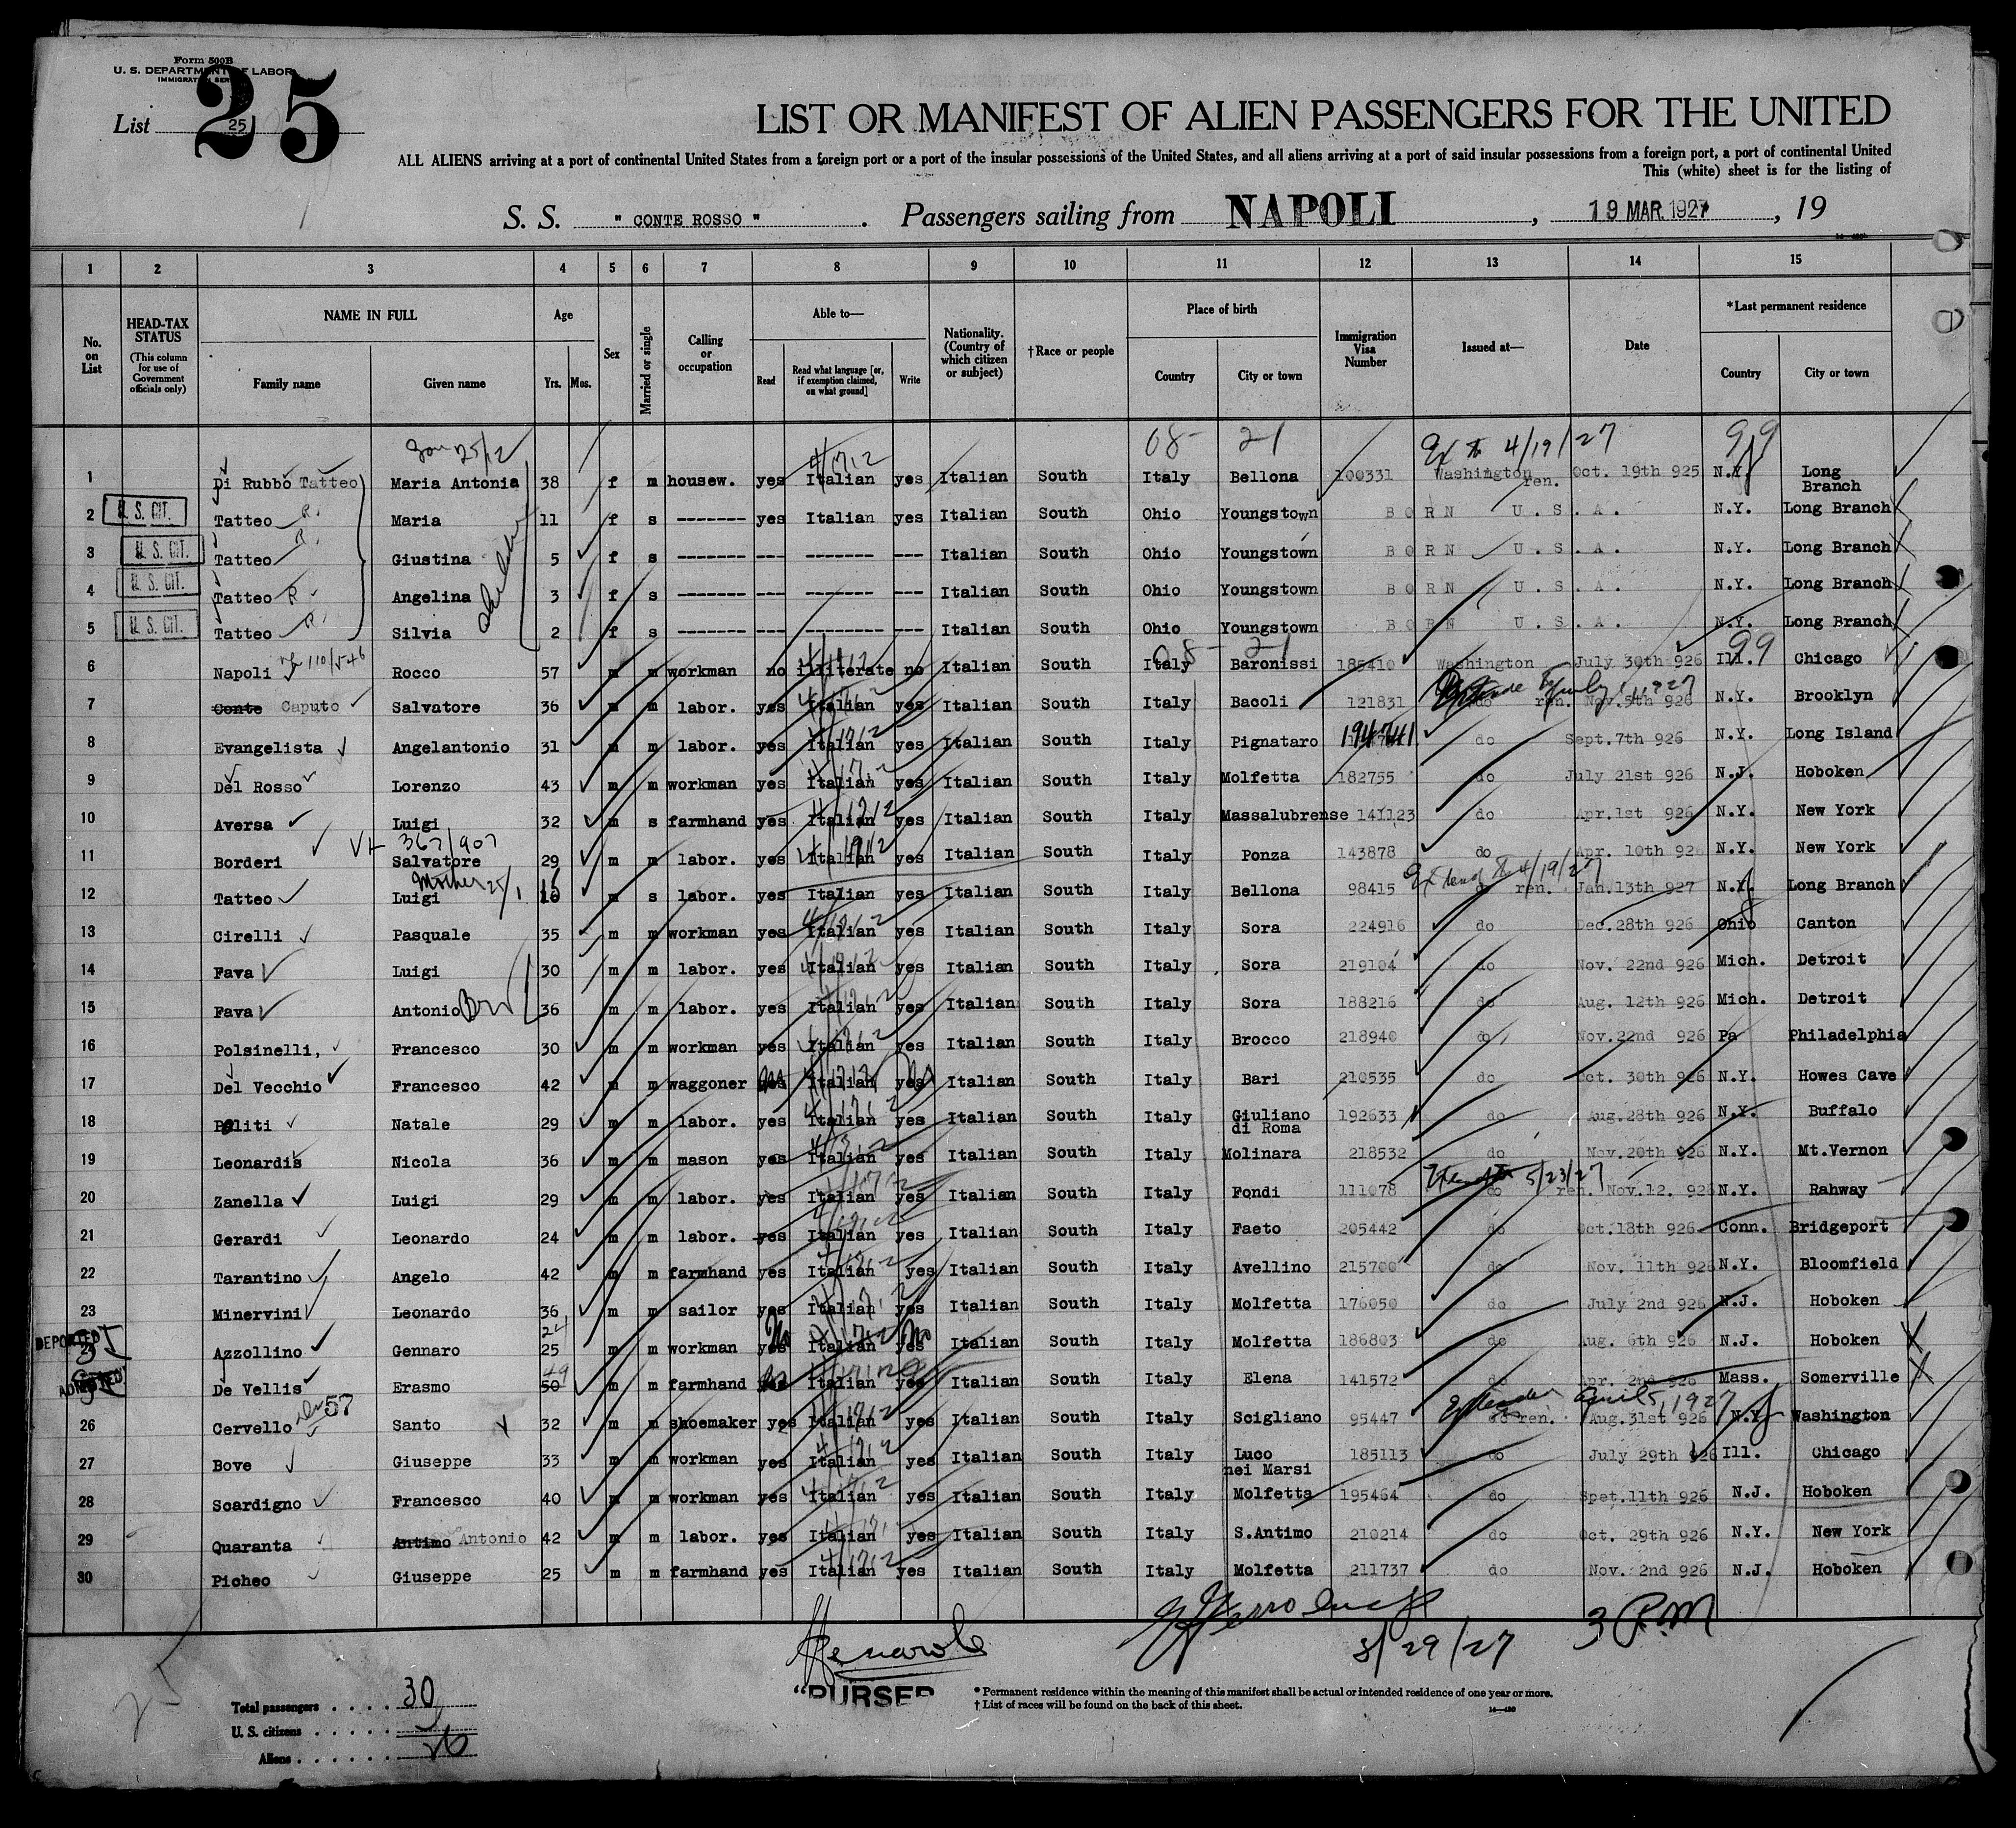 Form 500B
U. S. DEPARTMENT OF LABOR
IMMIGRATION SERVICE
25
List 25
LIST OR MANIFEST OF ALIEN PASSENGERS FOR THE UNITED
ALL ALIENS arriving at a port of continental United States from a foreign port or a port of the insular possessions of the United States, and all aliens arriving at a port of said insular possessions from a foreign port, a port of continental United
This (white) sheet is for the listing of
S. S. " CONTE ROSSO " . Passengers sailing from NAPOLI , 19 MAR. 1927 , 19
1 2 3 4 5 6 7 8 9 10 11 12 13 14 15
No. on List
HEAD-TAX STATUS (This column for use of Government officials only)
NAME IN FULL
Family name Given name
Age
Yrs. Mos.
Sex
Married or single
Calling or occupation
Able to—
Read Read what language [or, if exemption claimed, on what ground] Write
Nationality. (Country of which citizen or subject)
†Race or people
Place of birth
Country City or town
Immigration Visa Number
Issued at—
Date
*Last permanent residence
Country City or town
08- 21 4/19/27 99
1 Di Rubbo Tatteo Maria Antonia 38 f m housew. yes Italian yes Italian South Italy Bellona 100331 Washington ren. Oct. 19th 925 N.Y. Long Branch
2 U. S. CIT. Tatteo Maria 11 f s ------- yes Italian yes Italian South Ohio Youngstown BORN U.S.A. N.Y. Long Branch
3 U. S. CIT. Tatteo Giustina 5 f s ------- --- ------- --- Italian South Ohio Youngstown BORN U.S.A. N.Y. Long Branch
4 U. S. CIT. Tatteo Angelina 3 f s ------- --- ------- --- Italian South Ohio Youngstown BORN U.S.A. N.Y. Long Branch
5 U. S. CIT. Tatteo Silvia 2 f s ------- --- ------- --- Italian South Ohio Youngstown BORN U.S.A. N.Y. Long Branch
6 Napoli Rocco 57 m m workman no illiterate no Italian South Italy Baronissi 185410 Washington July 30th 926 Ill. Chicago
7 Conte Caputo Salvatore 36 m m labor. yes Italian yes Italian South Italy Bacoli 121831 do ren. Nov. 5th 926 N.Y. Brooklyn
8 Evangelista Angelantonio 31 m m labor. yes Italian yes Italian South Italy Pignataro 194741 do Sept. 7th 926 N.Y. Long Island
9 Del Rosso Lorenzo 43 m m workman yes Italian yes Italian South Italy Molfetta 182755 do July 21st 926 N.J. Hoboken
10 Aversa Luigi 32 m s farmhand yes Italian yes Italian South Italy Massalubrense 141123 do Apr. 1st 926 N.Y. New York
11 Borderi Salvatore 29 m m labor. yes Italian yes Italian South Italy Ponza 143878 do Apr. 10th 926 N.Y. New York
12 Tatteo Luigi m s labor. yes Italian yes Italian South Italy Bellona 98415 ren. Jan. 13th 927 N.Y. Long Branch
13 Cirelli Pasquale 35 m m workman yes Italian yes Italian South Italy Sora 224916 do Dec. 28th 926 Ohio Canton
14 Fava Luigi 30 m m labor. yes Italian yes Italian South Italy Sora 219104 do Nov. 22nd 926 Mich. Detroit
15 Fava Antonio 36 m m labor. yes Italian yes Italian South Italy Sora 188216 do Aug. 12th 926 Mich. Detroit
16 Polsinelli, Francesco 30 m m workman yes Italian yes Italian South Italy Brocco 218940 do Nov. 22nd 926 Pa Philadelphia
17 Del Vecchio Francesco 42 m m waggoner yes Italian yes Italian South Italy Bari 210535 do Oct. 30th 926 N.Y. Howes Cave
18 Politi Natale 29 m m labor. yes Italian yes Italian South Italy Giuliano di Roma 192633 do Aug. 28th 926 N.Y. Buffalo
19 Leonardis Nicola 36 m m mason yes Italian yes Italian South Italy Molinara 218532 do Nov. 20th 926 N.Y. Mt.Vernon
20 Zanella Luigi 29 m m labor. yes Italian yes Italian South Italy Fondi 111078 do 5/23/27 ren. Nov. 12. 926 N.Y. Rahway
21 Gerardi Leonardo 24 m m labor. yes Italian yes Italian South Italy Faeto 205442 do Oct. 18th 926 Conn. Bridgeport
22 Tarantino Angelo 42 m m farmhand yes Italian yes Italian South Italy Avellino 215700 do Nov. 11th 926 N.Y. Bloomfield
23 Minervini Leonardo 36 m m sailor yes Italian yes Italian South Italy Molfetta 176050 do July 2nd 926 N.J. Hoboken
DEPORTED Azzollino Gennaro 25 m m workman yes No Italian yes No Italian South Italy Molfetta 186803 do Aug. 6th 926 N.J. Hoboken
ADMITTED De Vellis Erasmo 50 49 m m farmhand Italian yes Italian South Italy Elena 141572 do Apr. 2nd 926 Mass. Somerville
26 Cervello Santo 32 m m shoemaker yes Italian yes Italian South Italy Scigliano 95447 do ren. Aug. 31st 926 N.Y. Washington
27 Bove Giuseppe 33 m m workman yes Italian yes Italian South Italy Luco nei Marsi 185113 do July 29th 926 Ill. Chicago
28 Scardigno Francesco 40 m m workman yes Italian yes Italian South Italy Molfetta 195464 do Spet. 11th 926 N.J. Hoboken
29 Quaranta Antimo Antonio 42 m m labor. yes Italian yes Italian South Italy S.Antimo 210214 do Oct. 29th 926 N.Y. New York
30 Picheo Giuseppe 25 m m farmhand yes Italian yes Italian South Italy Molfetta 211737 do Nov. 2nd 926 N.J. Hoboken
3/29/27 3 P.M
"PURSER
* Permanent residence within the meaning of this manifest shall be actual or intended residence of one year or more.
† List of races will be found on the back of this sheet.
Total passengers . . . . . 30
U. S. citizens . . . . .
Aliens . . . . . . 26